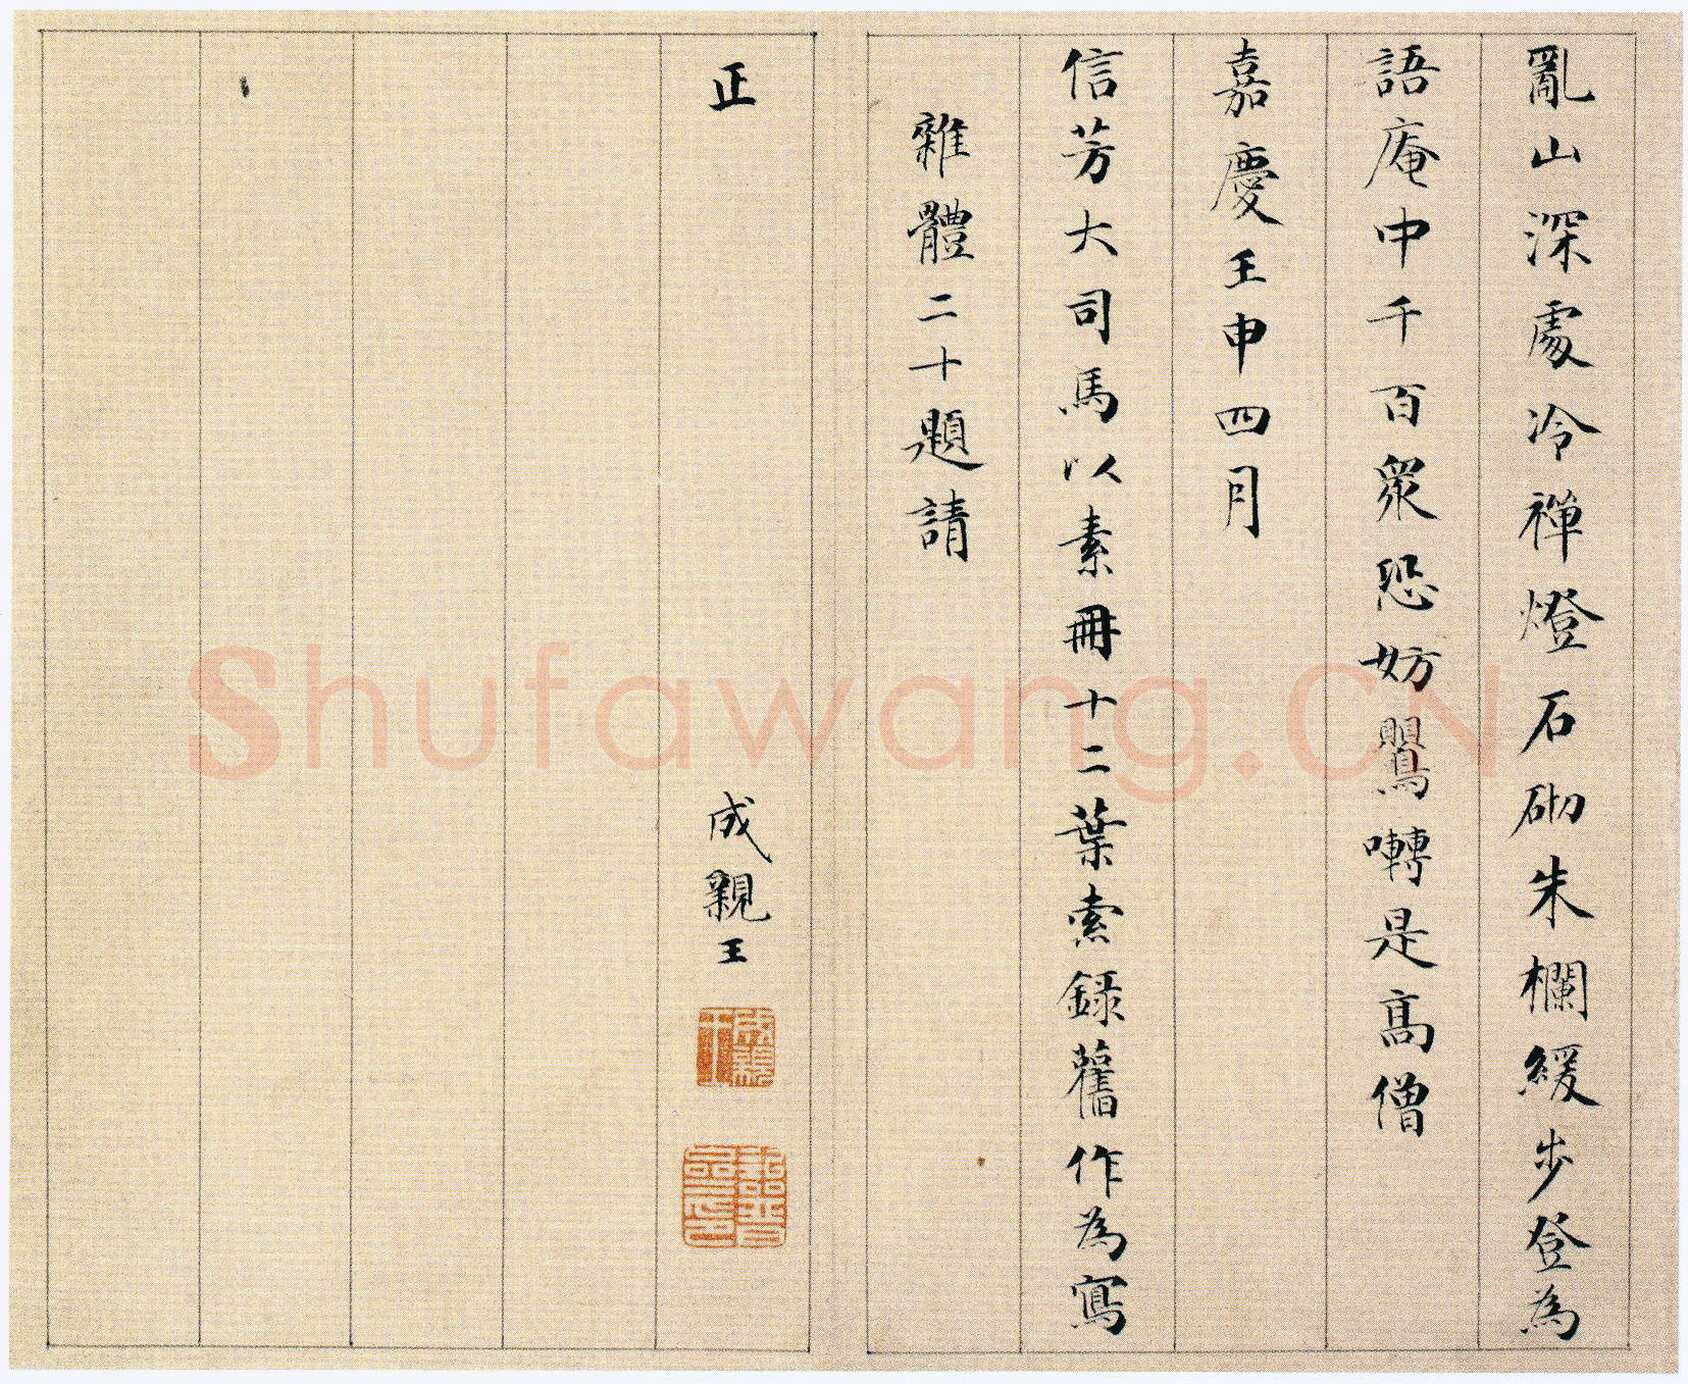 亂山深處冷禪燈石砌朱欄緩步登為
語庵中千百衆恐妨鸎囀是高僧
嘉慶壬申四月
信芳大司馬以素冊十二葉索錄舊作為寫
雜體二十題請
正
成親王
成親王
Shufawang.CN